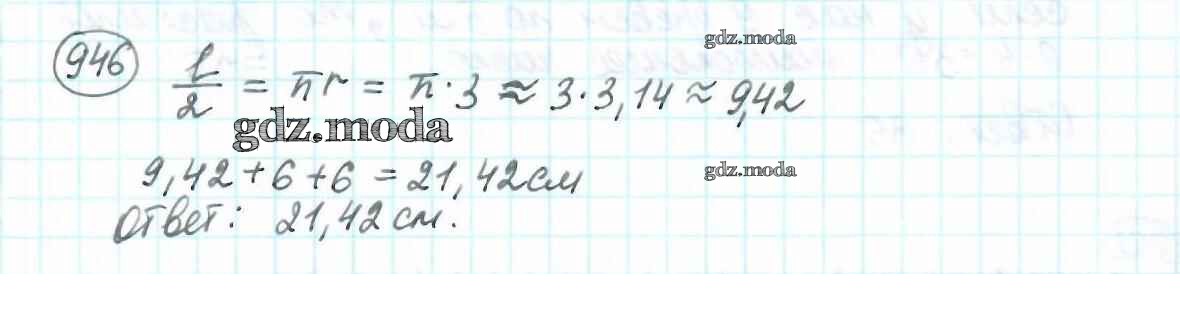 946
gdz.moda
l/2 = πr = π·3 ≈ 3·3,14 ≈ 9,42
gdz.moda
9,42+6+6 = 21,42см
gdz.moda
Ответ: 21,42 см.